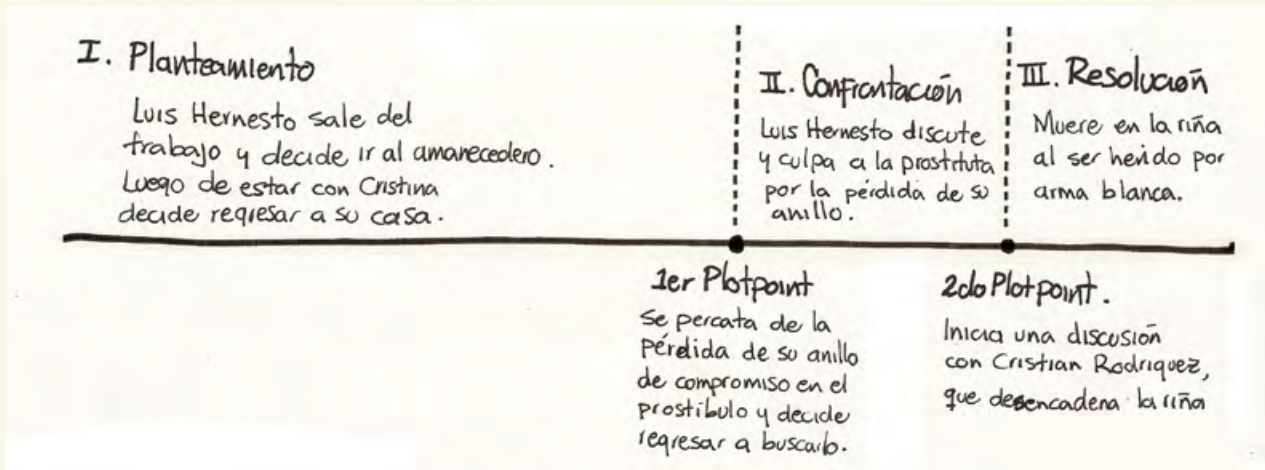 I. Planteamiento
Luis Hernesto sale del
trabajo y decide ir al amanecedero.
Luego de estar con Cristina
decide regresar a su casa.
II. Confrontación
Luis Hernesto discute
y culpa a la prostituta
por la pérdida de su
anillo.
III. Resolución
Muere en la riña
al ser herido por
arma blanca.
1er Plotpoint
Se percata de la
pérdida de su anillo
de compromiso en el
prostíbulo y decide
regresar a buscarlo.
2do Plotpoint.
Inicia una discusión
con Cristian Rodriguez,
que desencadena la riña